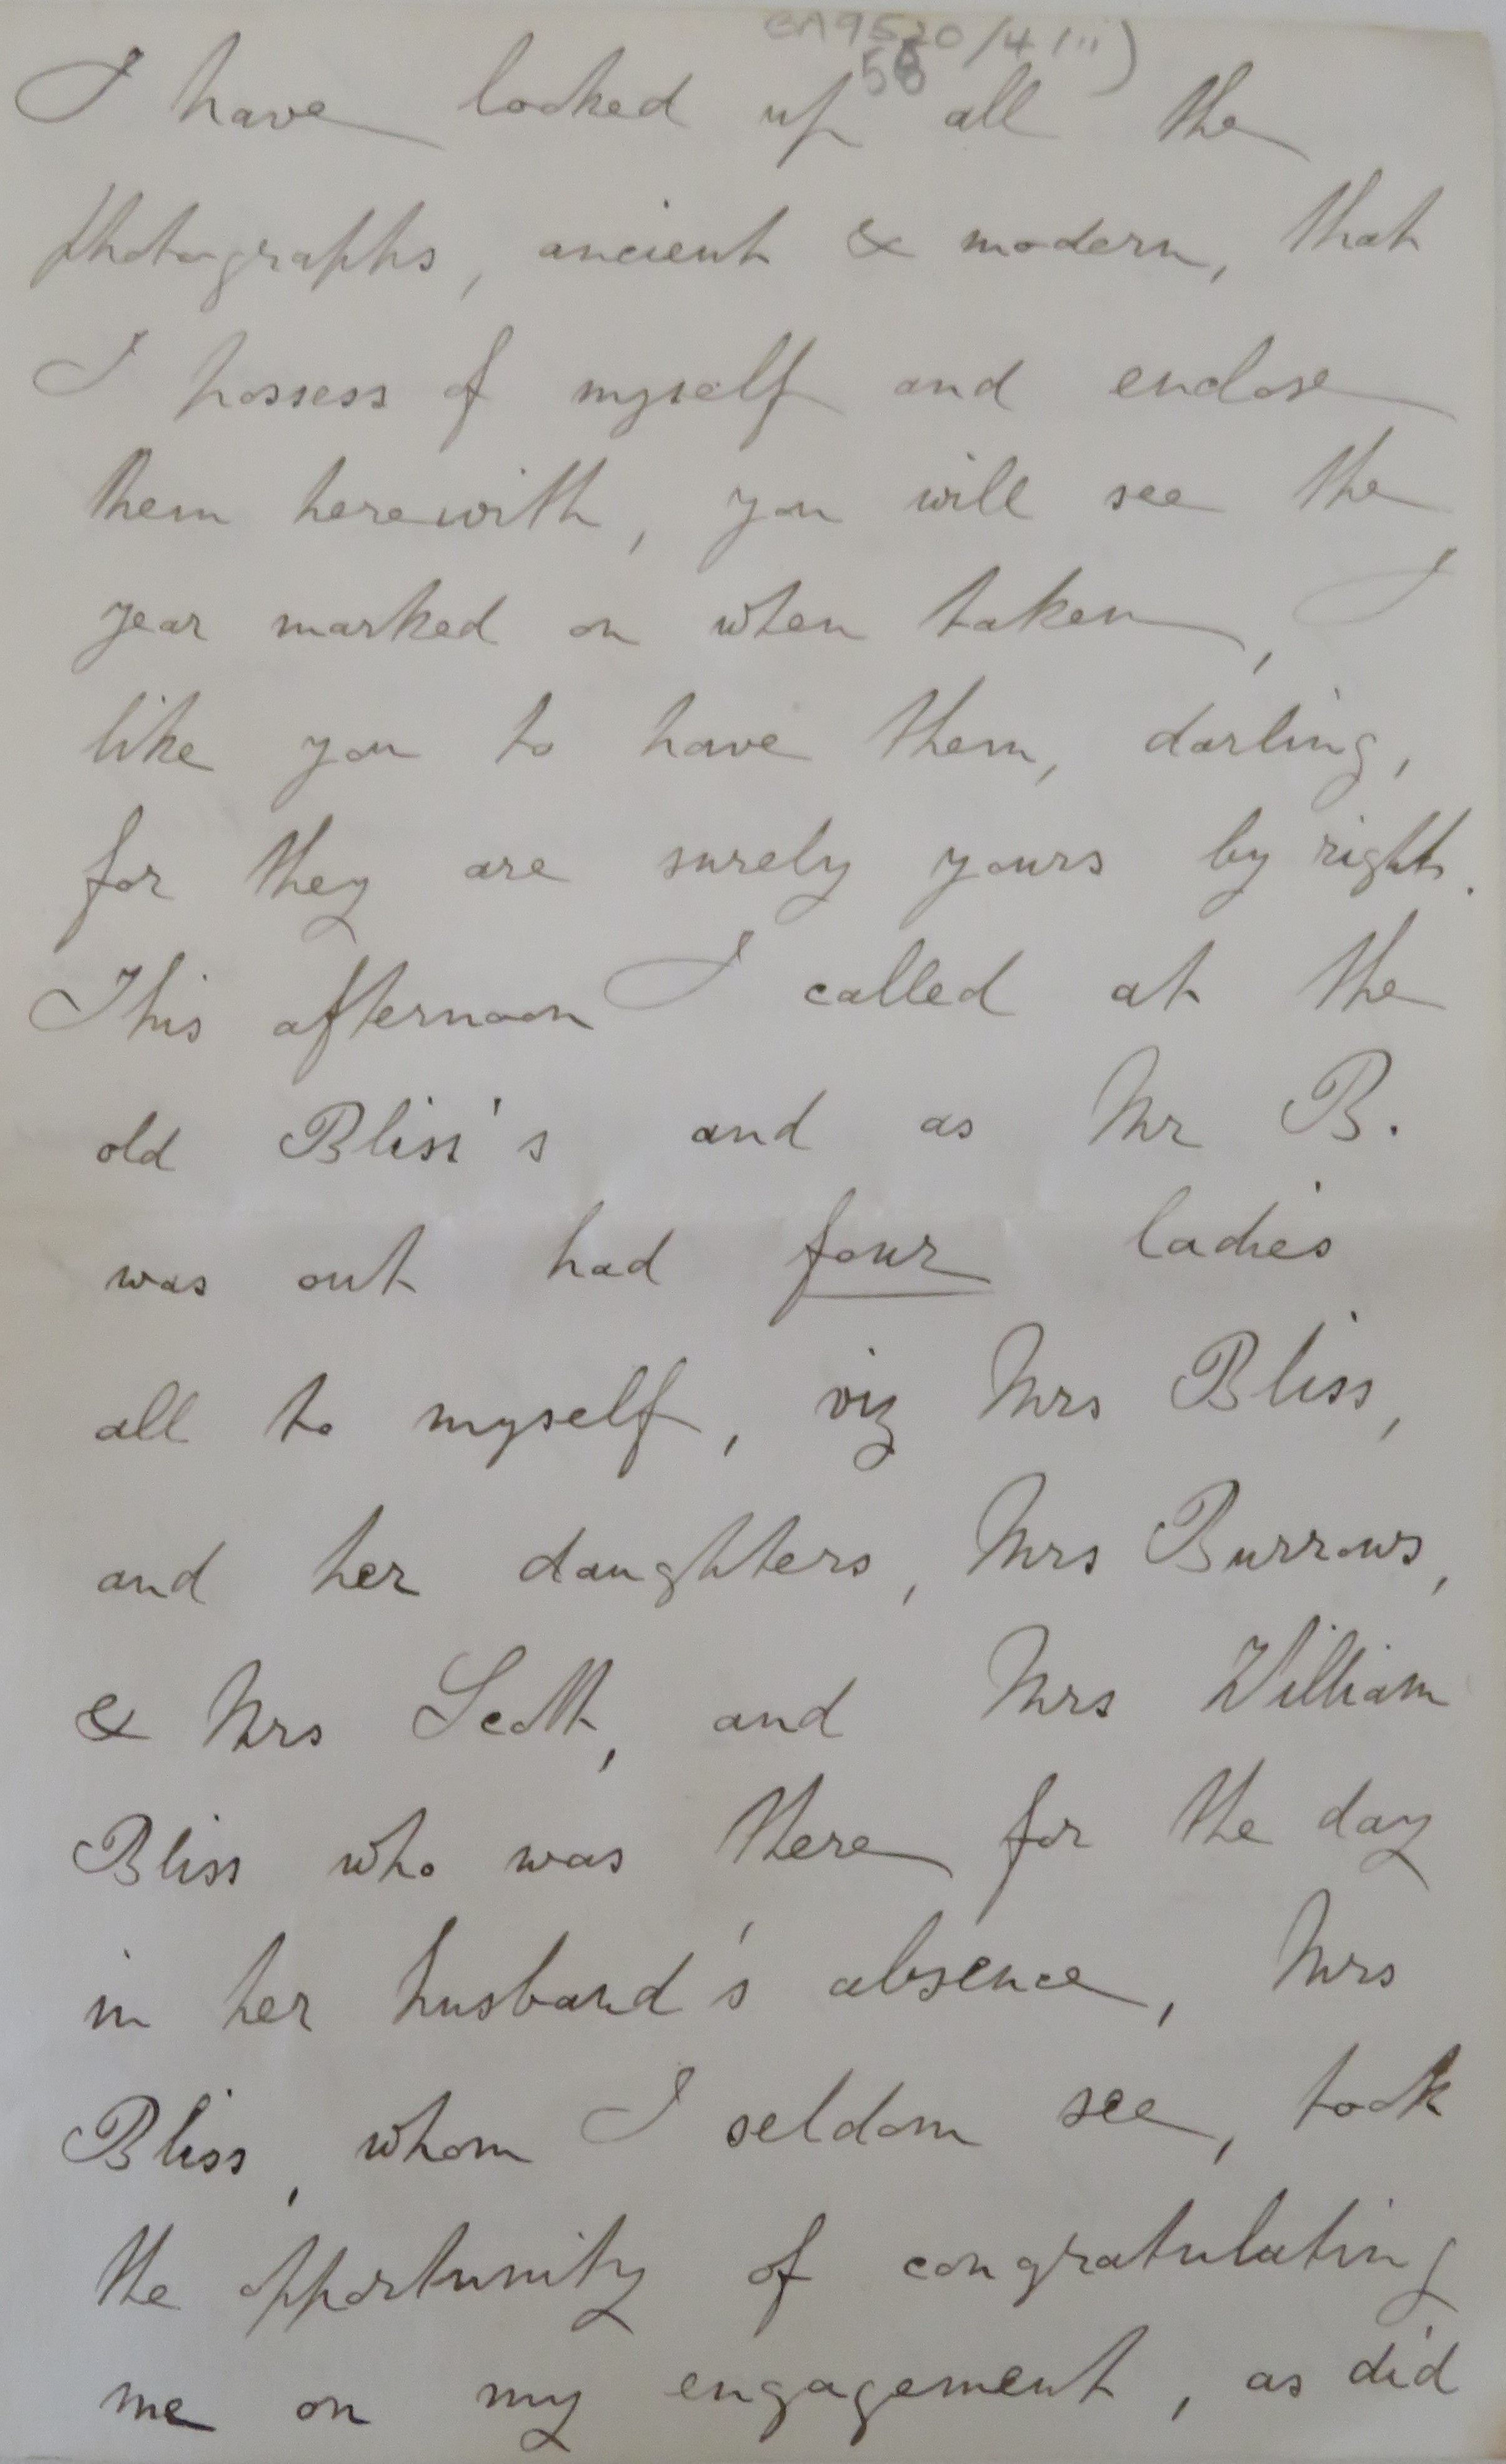 BA9520/4 iii)
58
I have looked up all the
photographs, ancient & modern, that
I possess of myself and enclose
them herewith, you will see the
year marked on when taken, I
like you to have them, darling,
for they are surely yours by right.
This afternoon I called at the
old Bliss's and as Mr B.
was out had four ladies
all to myself, viz Mrs Bliss,
and her daughters, Mrs Burrows,
& Mrs Scott, and Mrs William
Bliss who was there for the day
in her husband's absence, Mrs
Bliss, whom I seldom see, took
the opportunity of congratulating
me on my engagement, as did